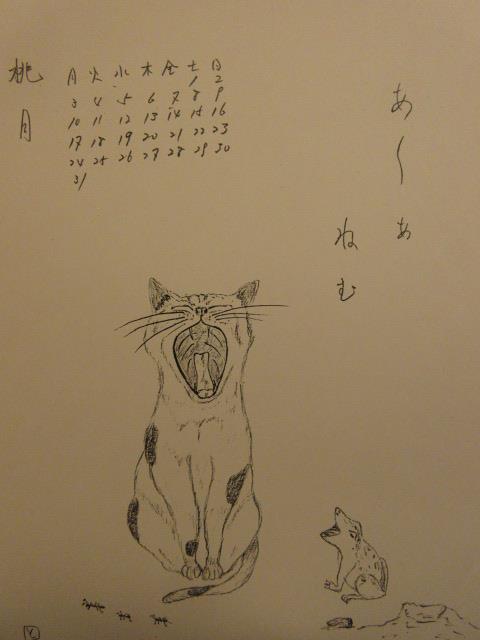 桃月
月 火 水 木 金 土 日
1 2
3 4 5 6 7 8 9
10 11 12 13 14 15 16
17 18 19 20 21 22 23
24 25 26 27 28 29 30
31
あ〜ぁ
ねむ